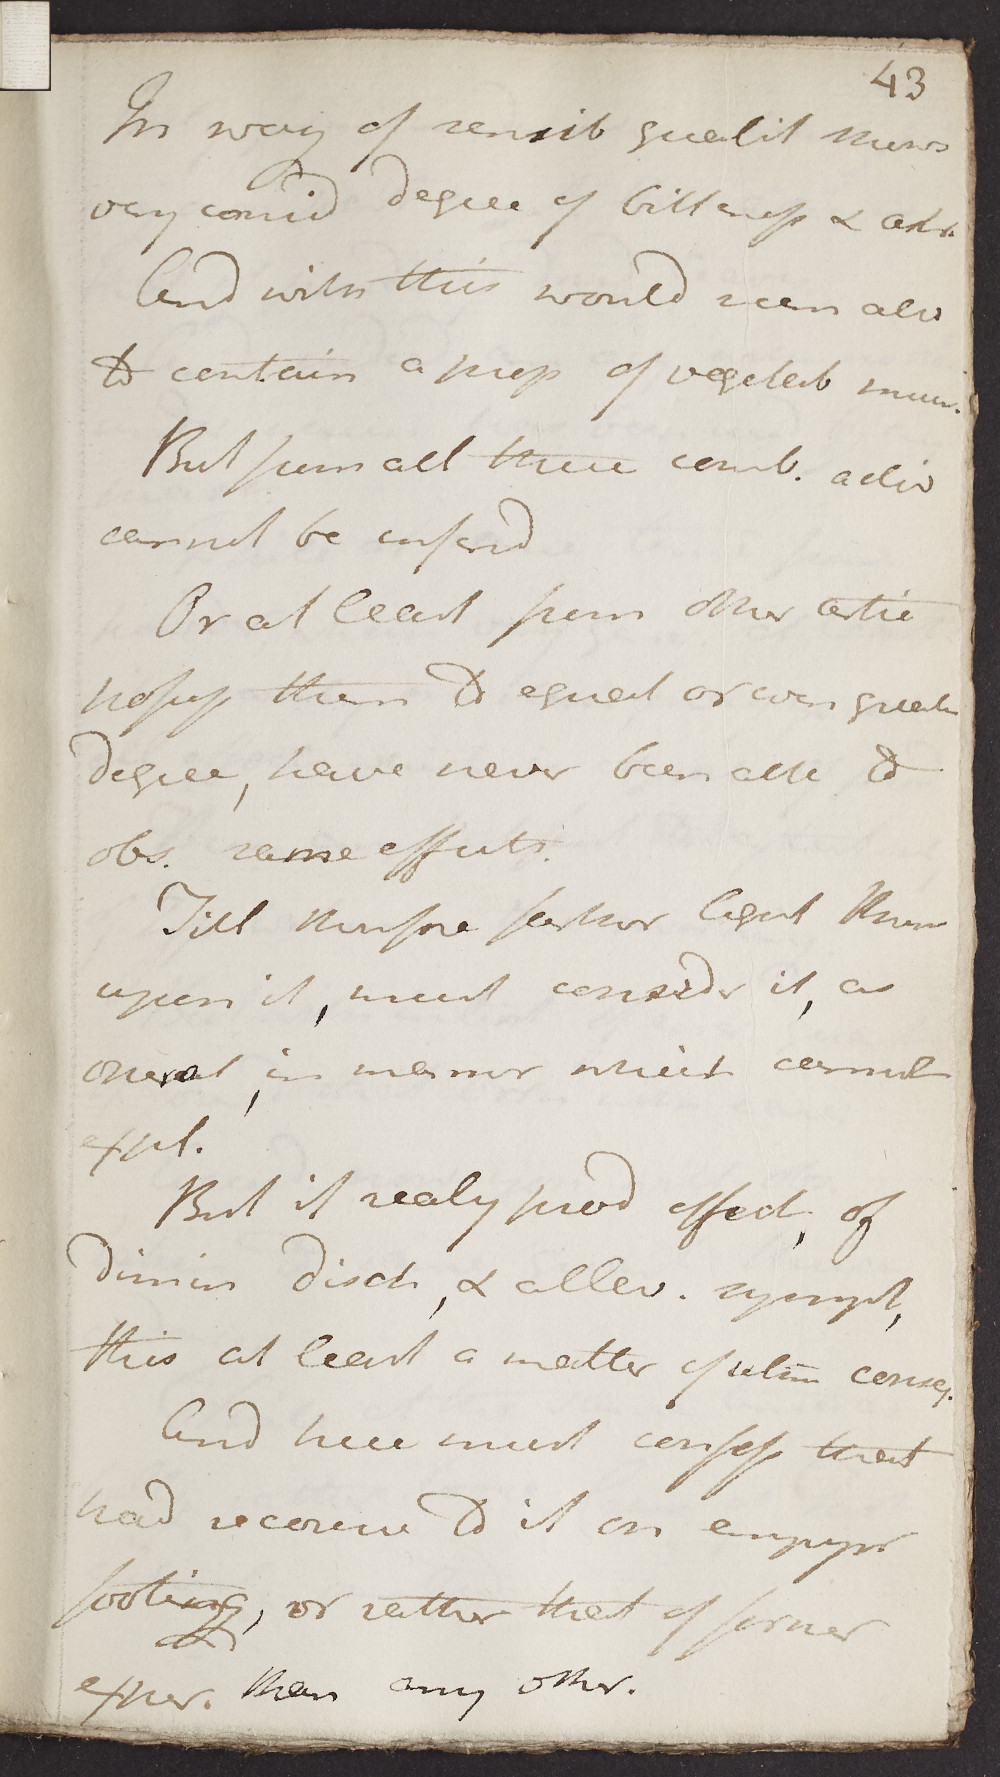 43
In way of sensib qualit shews
very consid degree of bitterness & astr.
And with this would seem also
to contain a prop of vegetab muci.
But from all these comb. activ
cannot be inferd
Or at least from other artic
possess them to equal or even greater
degree, have never been able to
obs. same effects.
Till therefore farther light thrown
upon it, must consider it, as
operat, in manner which cannot
expl.
But if realy prod effect, of
dimin disch, & allev. sympt,
this at least a matter of utm conseq.
And here must confess that
had recourse to it on empyr
footing, or rather that of former
exper. than any other.